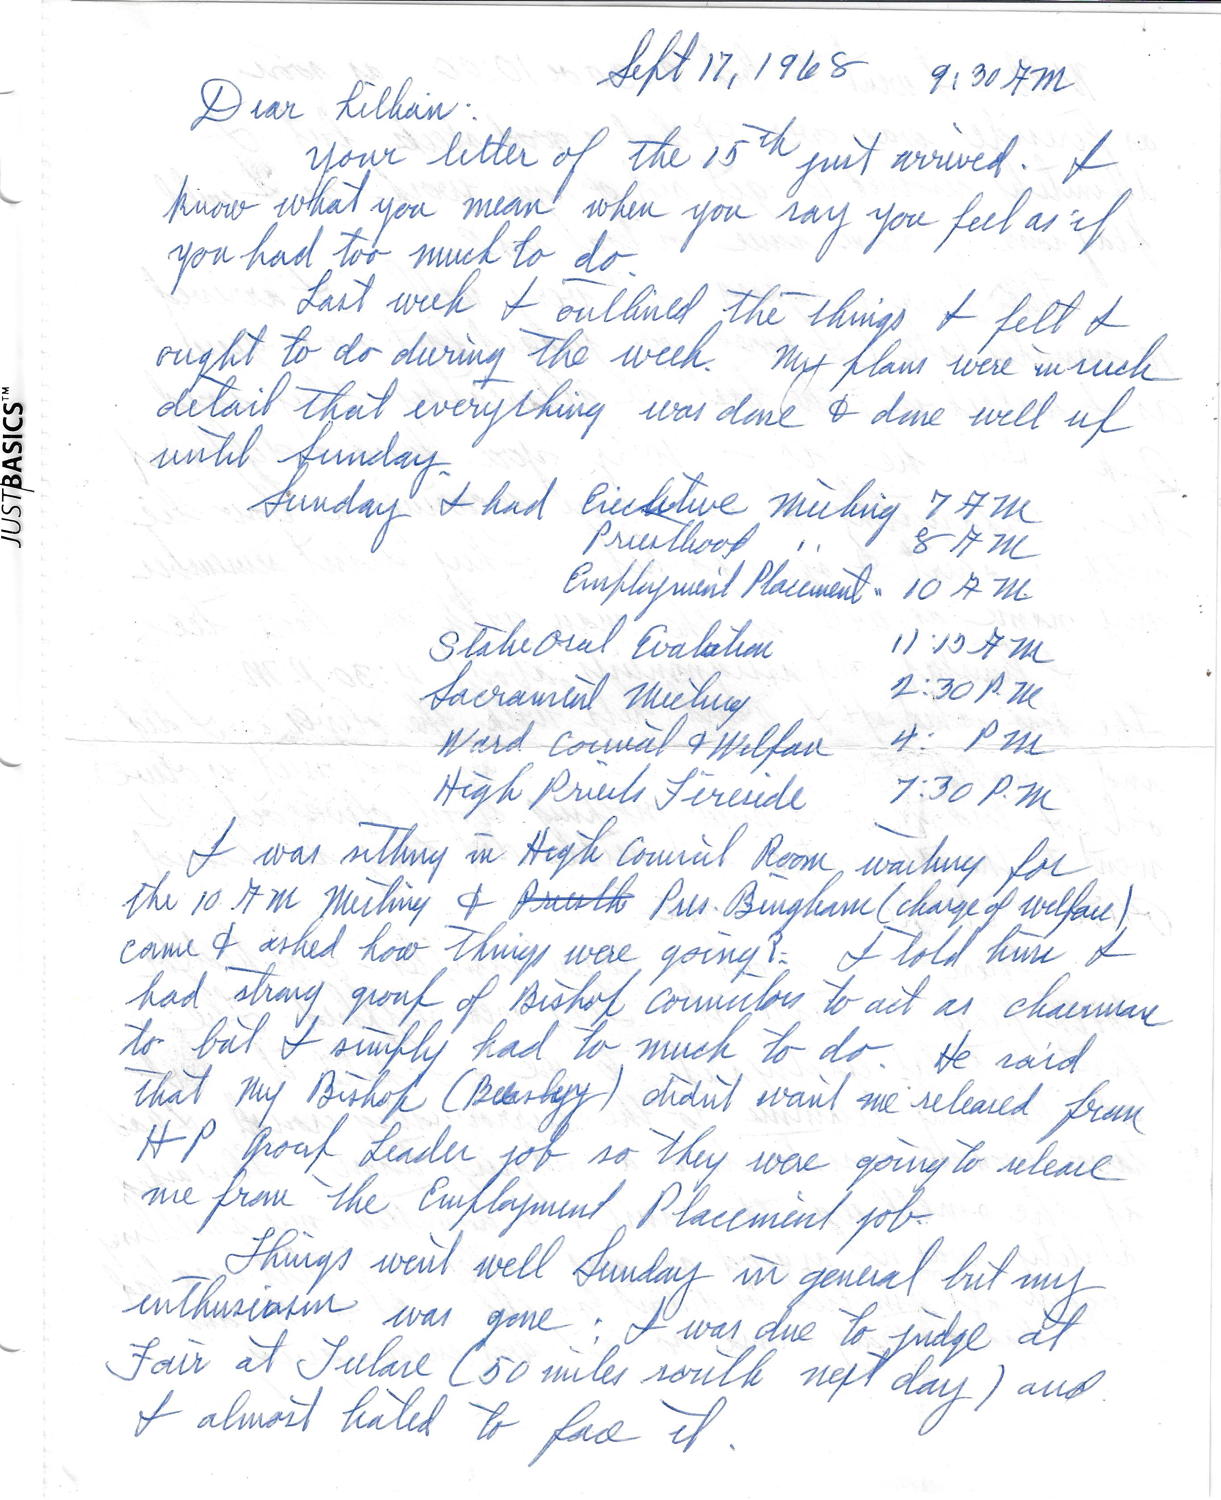 Sept 17, 1968 9:30 AM
Dear Lillian:
Your letter of the 15th just arrived. I
know what you mean when you say you feel as if
you had too much to do.
Last week I outlined the things I felt I
ought to do during the week. My plans were in such
detail that everything was done & done well up
until Sunday.
Sunday I had Executive Meeting 7 AM
Priesthood " 8 AM
Employment Placement " 10 AM
Stake Oral Evaluation 11:15 AM
Sacrament Meeting 2:30 P.M
Ward Council & Welfare 4: PM
High Priests Fireside 7:30 P.M
I was sitting in High Council Room waiting for
the 10 AM Meeting & Priesth Pres. Bingham (charge of welfare)
came & asked how things were going?. I told him I
had strong group of Bishop Councilors to act as chairman
to- but I simply had to much to do. He said
that my Bishop ( ) didn't want me released from
HP Group Leader job so they were going to release
me from the Employment Placement job.
Things went well Sunday in general but my
enthusiasm was gone; I was due to judge at
Fair at Tulare (50 miles south next day) and
I almost hated to face it.
JUSTBASICS™